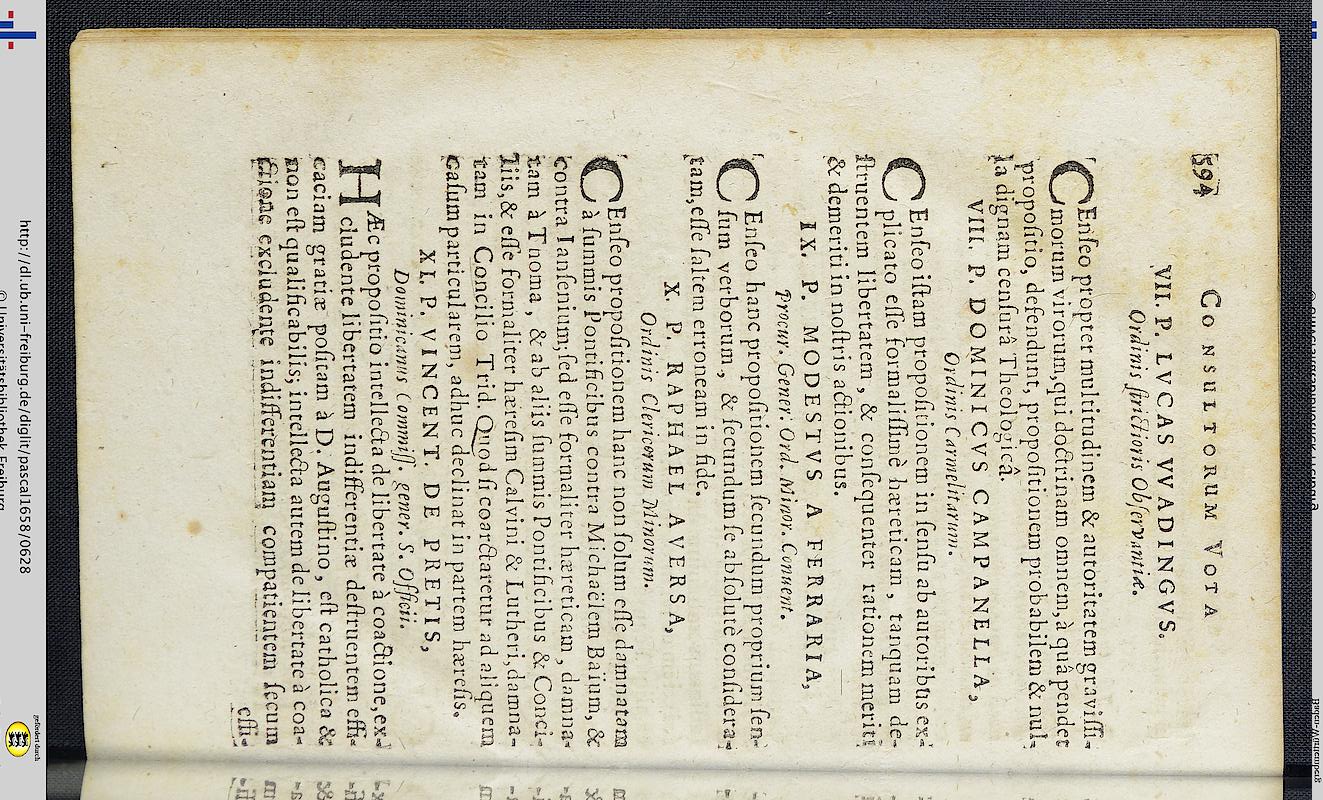 594 CONSULTORUM VOTA
VII. P. LVCAS VVADINGVS.
Ordinis strictioris Observantiæ.
CEnseo propter multitudinem & autoritatem gravissi-
morum virorum, qui doctrinam omnem, à quâ pendet
propositio, defendunt, propositionem probabilem & nul-
la dignam censurâ Theologicâ.
VIII. P. DOMINICVS CAMPANELLA,
Ordinis Carmelitarum.
CEnseo istam propositionem in sensu ab autoribus ex-
plicato esse formalissimè hæreticam, tanquam de-
struentem libertatem, & consequenter rationem meriti
& demeriti in nostris actionibus.
IX. P. MODESTVS A FERRARIA,
Procur. Gener. Ord. Minor. Convent.
CEnseo hanc propositionem secundum proprium sen-
sum verborum, & secundum se absolutè considera-
tam, esse saltem erroneam in fide.
X. P. RAPHAEL AVERSA,
Ordinis Clericorum Minorum.
CEnseo propositionem hanc non solum esse damnatam
à summis Pontificibus contra Michaëlem Baïum, &
contra Iansenium; sed esse formaliter hæreticam, damna-
tam à Thoma, & ab aliis summis Pontificibus & Conci-
liis, & esse formaliter hæresim Calvini & Lutheri, damna-
tam in Concilio Trid. Quod si coarctaretur ad aliquem
casum particularem, adhuc declinat in partem hæresis.
XI. P. VINCENT. DE PRETIS,
Dominicanus Commiss. gener. S. Officii.
HÆc propositio intellecta de libertate à coactione, ex-
cludente libertatem indifferentiæ destruentem effi-
caciam gratiæ positam à D. Augustino, est catholica &
non est qualificabilis; intellecta autem de libertate à coa-
ctione excludente indifferentiam compatientem secum
effi-
http://dl.ub.uni-freiburg.de/diglit/pascal1658/0628
© Universitätsbibliothek Freiburg
gefördert durch